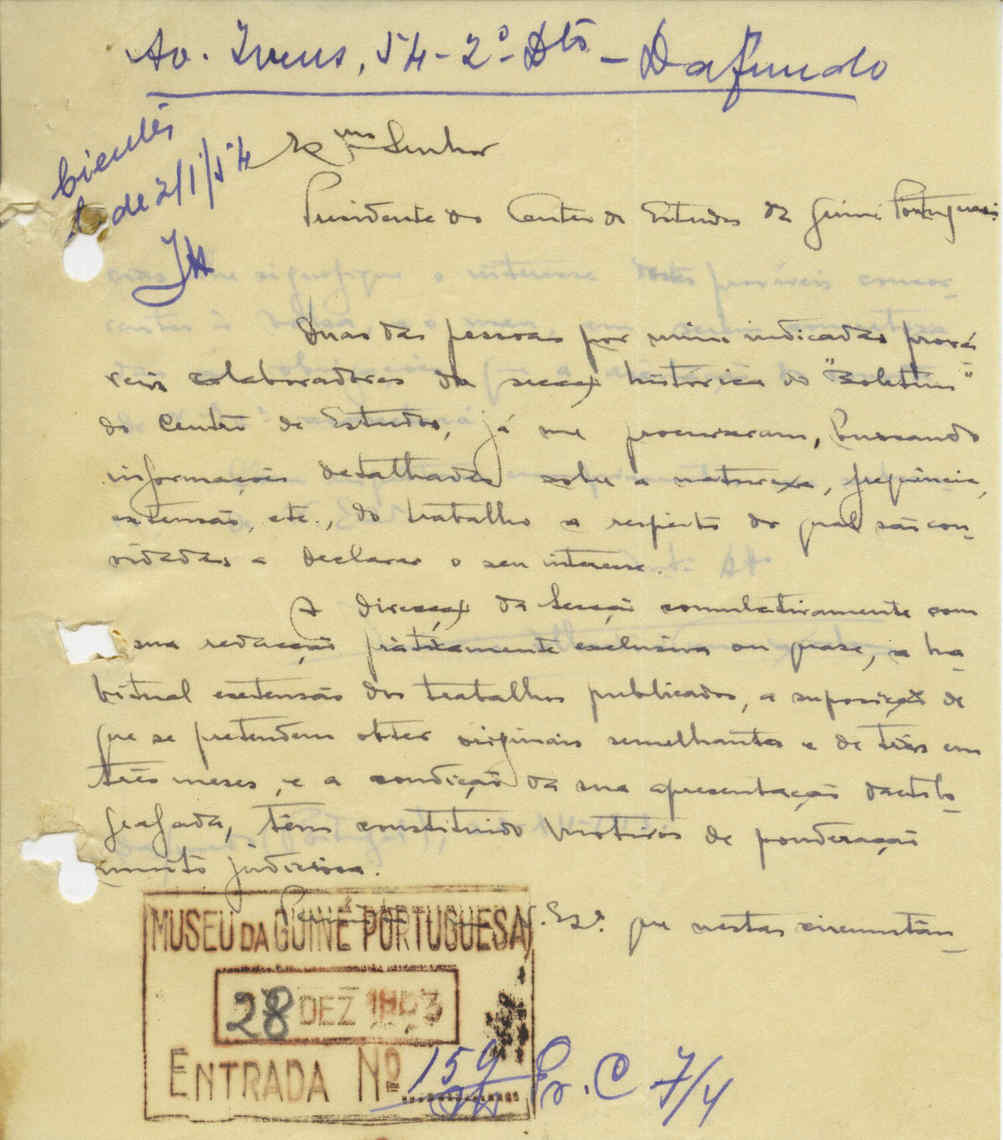 Av. Ivens, 54-2º-Dtº - Dafundo
Ciente
de 2/1/54
Exmo Senhor
Presidente do Centro de Estudos da Guiné Portuguesa
Duas das pessoas por mim indicadas prová-
veis colaboradores da secção histórica do "Boletim"
do Centro de Estudos, já me procuraram, buscando
informações detalhadas sobre a natureza, frequência,
extensão, etc., do trabalho a respeito do qual são con-
vidadas a declarar o seu interesse.
A direcção da Secção cumulativamente com
sua redacção pràticamente exclusiva ou quase, a ha-
bitual extensão dos trabalhos publicados, a suposição de
que se pretendem obter originais semelhantes e de três em
três meses, e a condição da sua apresentação dactilo-
grafada, têm constituido motivos de ponderação
muito judiciosa.
V. Exª. que nestas circunstân-
MUSEU DA GUINÉ PORTUGUESA
28 DEZ 1953
ENTRADA Nº 159
Pr. C 7/4